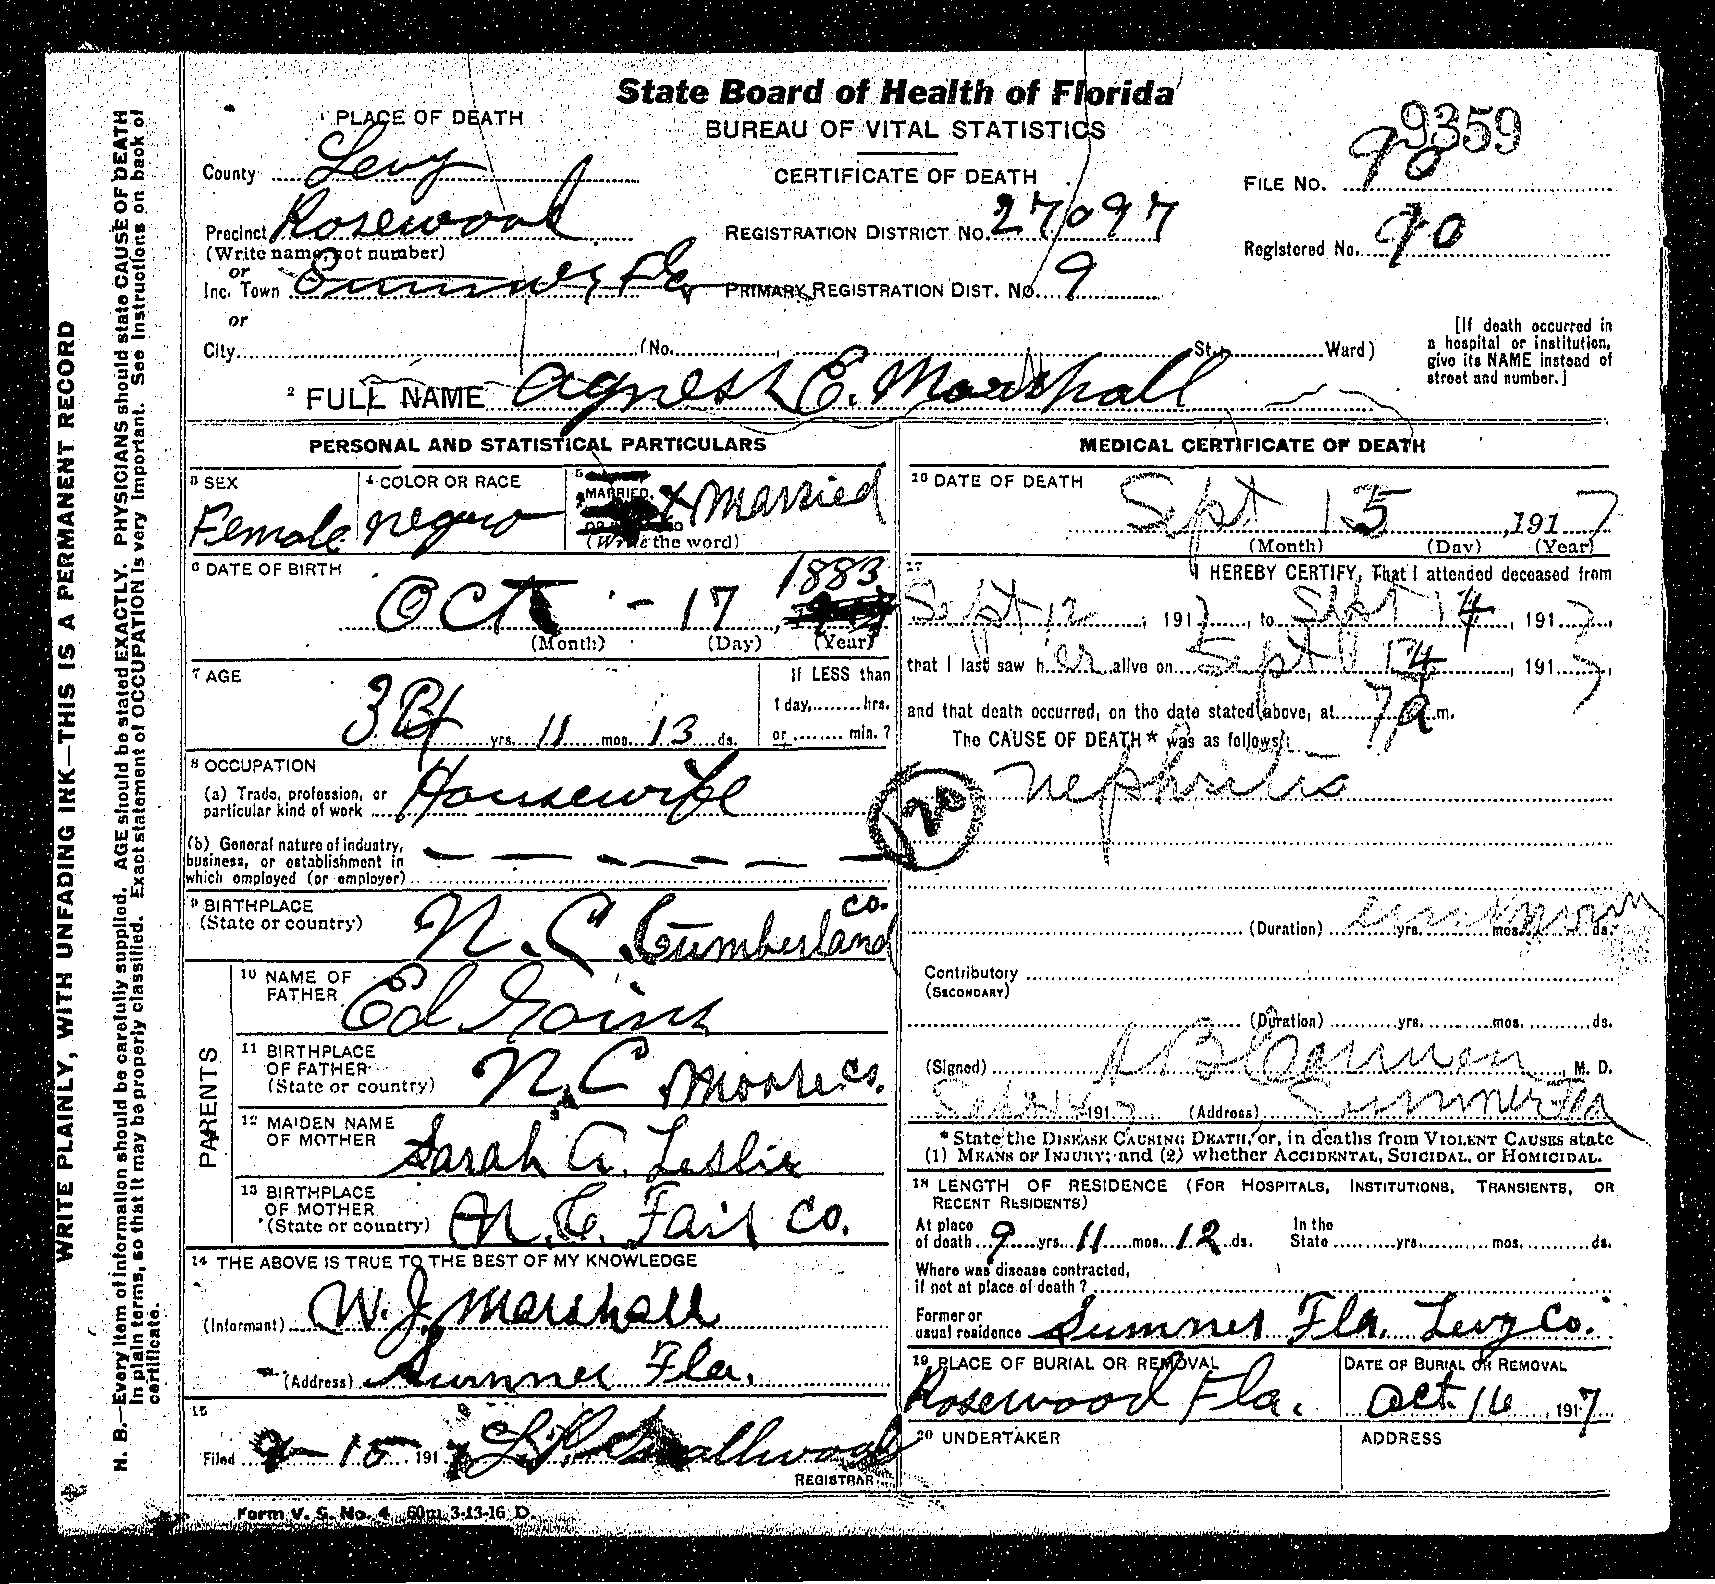 State Board of Health of Florida
BUREAU OF VITAL STATISTICS
CERTIFICATE OF DEATH
9359
FILE NO. 90
Registered No. 90
¹ PLACE OF DEATH
County Levy
Precinct Rosewood
(Write name, not number)
or
Inc. Town Sumner Fla
or
City (No. , St., Ward)
REGISTRATION DISTRICT NO. 27097
PRIMARY REGISTRATION DIST. NO. 9
[If death occurred in
a hospital or institution,
give its NAME instead of
street and number.]
² FULL NAME Agness E. Marshall
PERSONAL AND STATISTICAL PARTICULARS
³ SEX
Female
⁴ COLOR OR RACE
negro
⁵
MARRIED,
x Married
(Write the word)
⁶ DATE OF BIRTH
Oct - 17, 1883
(Month) (Day) (Year)
⁷ AGE
yrs. 11 mos. 13 ds.
If LESS than
1 day, hrs.
or min.?
⁸ OCCUPATION
(a) Trade, profession, or
particular kind of work Housewife
(b) General nature of industry,
business, or establishment in
which employed (or employer)
⁹ BIRTHPLACE
(State or country) N. C. Cumberland Co.
PARENTS
¹⁰ NAME OF
FATHER Ed Goins
¹¹ BIRTHPLACE
OF FATHER
(State or country) N. C Moore Co.
¹² MAIDEN NAME
OF MOTHER Sarah A. Leslie
¹³ BIRTHPLACE
OF MOTHER
(State or country) N. C. Fair Co.
¹⁴ THE ABOVE IS TRUE TO THE BEST OF MY KNOWLEDGE
(Informant) W. J. Marshall
(Address) Sumner Fla.
¹⁵
Filed 9-15 1917 L. P. Smallwood
REGISTRAR
Form V. S. No. 4 60m 3-13-16 D.
MEDICAL CERTIFICATE OF DEATH
¹⁶ DATE OF DEATH
Sept 15, 1917
(Month) (Day) (Year)
¹⁷ I HEREBY CERTIFY, That I attended deceased from
Sept 12, 1917, to Sept 14, 1917,
that I last saw her alive on Sept 14, 1917,
and that death occurred, on the date stated above, at 7 a m.
The CAUSE OF DEATH* was as follows:
Nephritis
120
(Duration) unknown yrs. mos. ds.
Contributory
(SECONDARY)
(Duration) yrs. mos. ds.
(Signed) M. D.
1917 (Address) Sumner Fla
*State the DISEASE CAUSING DEATH, or, in deaths from VIOLENT CAUSES state
(1) MEANS OF INJURY; and (2) whether ACCIDENTAL, SUICIDAL, or HOMICIDAL.
¹⁸ LENGTH OF RESIDENCE (FOR HOSPITALS, INSTITUTIONS, TRANSIENTS, OR
RECENT RESIDENTS)
At place
of death 9 yrs. 11 mos. 12 ds.
In the
State yrs. mos. ds.
Where was disease contracted,
if not at place of death?
Former or
usual residence Sumner Fla. Levy Co.
¹⁹ PLACE OF BURIAL OR REMOVAL
Rosewood Fla.
DATE OF BURIAL OR REMOVAL
Oct. 16, 1917
²⁰ UNDERTAKER
ADDRESS
WRITE PLAINLY, WITH UNFADING INK—THIS IS A PERMANENT RECORD
N. B.—Every item of information should be carefully supplied. AGE should be stated EXACTLY. PHYSICIANS should state CAUSE OF DEATH
in plain terms, so that it may be properly classified. Exact statement of OCCUPATION is very important. See Instructions on back of
certificate.